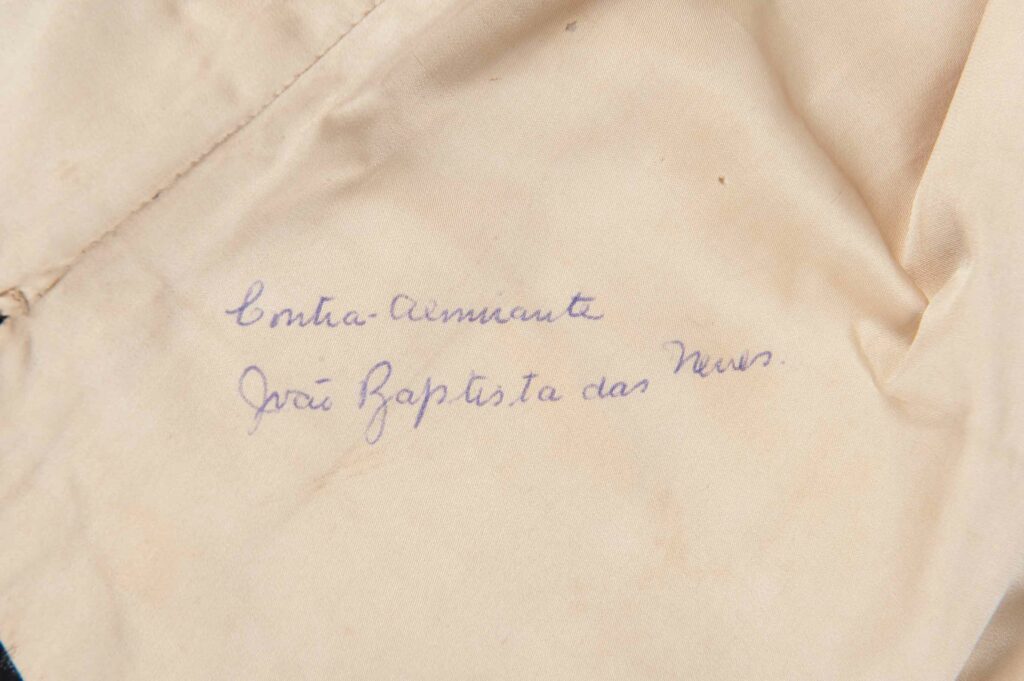 Contra-Almirante
João Baptista das Neves.